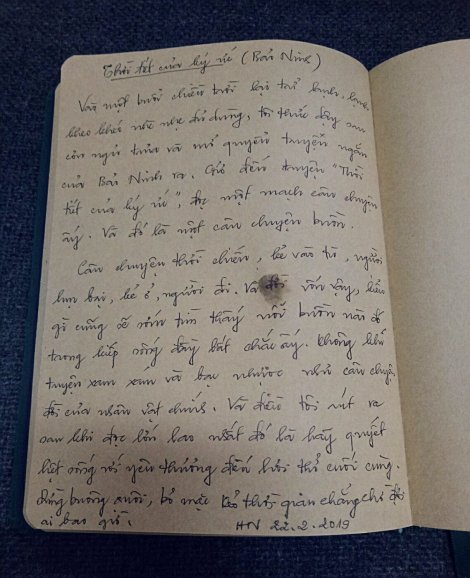 Thời tiết của ký ức (Bảo Ninh)
Vào một buổi chiều trời lại trở lạnh,
heo heo nức nhẹ dìu dừng, tôi thức dậy sau
cơn ngủ trưa và mở quyển truyện ngắn
của Bảo Ninh ra. Giở đến truyện "Thời
tiết của ký ức", đọc một mạch câu chuyện
ấy. Và đó là một câu chuyện buồn.
Câu chuyện thời chiến, kẻ vào tù, người
lụn bại, kẻ ở, người đi. Và đời vốn vậy, kiểu
gì cũng sẽ sớm tìm thấy nỗi buồn nào đó
trong kiếp sống đầy bất chắc ấy. Không kể
truyện xam xám và bạc nhược như câu chuyện
đời của nhân vật chính. Và điều tôi rút ra
sau khi đọc lớn lao nhất đó là hãy quyết
liệt sống rồi yêu thương đến hơi thở cuối cùng.
Đừng buông xuôi, bỏ mặc thời gian chẳng chờ đợi
ai bao giờ.
HN 22.2.2019